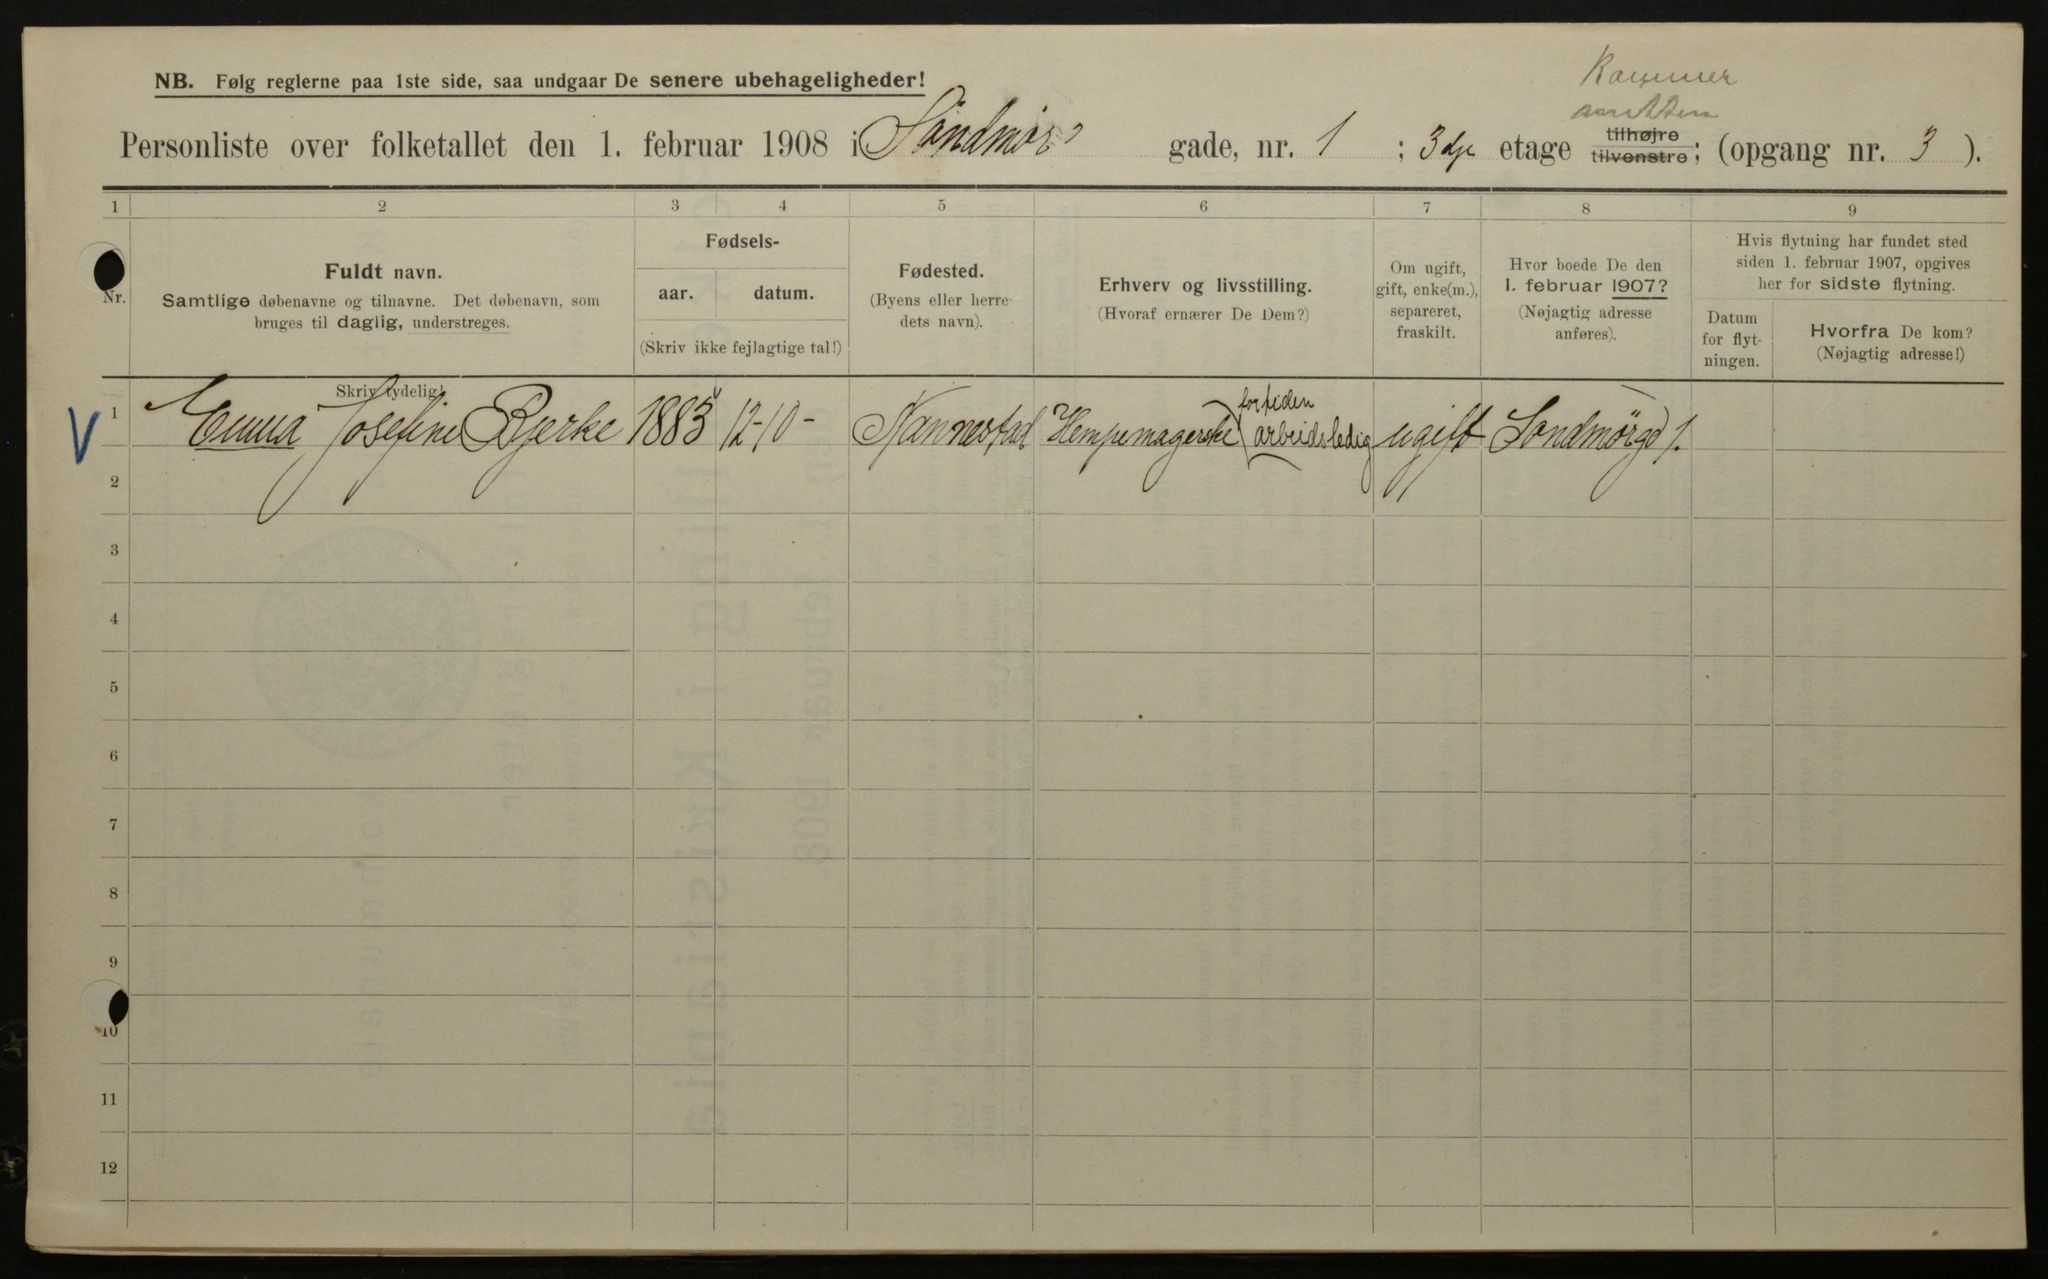 Kammer
NB. Følg reglerne paa 1ste side, saa undgaar De senere ubehageligheder!
Personliste over folketallet den 1. februar 1908 i Söndmørs gade, nr. 1 ; 3dje etage tilhøjre tilvenstre; (opgang nr. 3 ).
1 2 3 4 5 6 7 8 9
Nr.
Fuldt navn.
Samtlige døbenavne og tilnavne. Det døbenavn, som
bruges til daglig, understreges.
Fødsels-
aar. datum.
(Skriv ikke fejlagtige tal!)
Fødested.
(Byens eller herre-
dets navn).
Erhverv og livsstilling.
(Hvoraf ernærer De Dem?)
Om ugift,
gift, enke(m.),
separeret,
fraskilt.
Hvor boede De den
1. februar 1907?
(Nøjagtig adresse
anføres).
Hvis flytning har fundet sted
siden 1. februar 1907, opgives
her for sidste flytning.
Datum
for flyt-
ningen.
Hvorfra De kom?
(Nøjagtig adresse!)
Skriv tydelig!
fortiden
V 1 Emma Josefine Bjerke 1883 12-10- Nannestad Hempemagerske arbeidsledig ugift Sondmørgd 1.
2
3
4
5
6
7
8
9
10
11
12